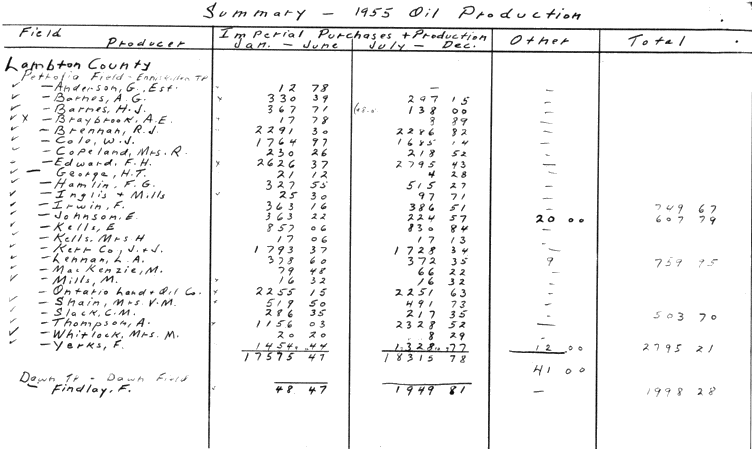 Summary - 1955 Oil Production
Field Producer Imperial Purchases + Production Jan. - June July - Dec. Other Total
Lambton County
Petrolia Field - Enniskillen Tp
- Anderson, G., Est. 12 78 -
- Barnes, A. G. 330 39 297 15 -
- Barnes, H. J. 367 71 138 00 -
x - Braybrook, A. E. 17 78 8 89 -
- Brennan, R. J. 2291 30 2286 82 -
- Cole, W. J. 1764 97 1685 14 -
- Copeland, Mrs. R. 230 26 218 52 -
- Edward, F. H. 2626 37 2795 43 -
- George, H. T. 21 12 4 28 -
- Hamlin, F. G. 327 55 515 27 -
- Inglis + Mills 25 30 97 71 -
- Irwin, F. 363 16 386 51 - 749 67
- Johnson, E. 363 22 224 57 20 00 607 79
- Kells, E 857 06 830 84 -
- Kells, Mrs H 17 06 17 13 -
- Kerr Co, J. + J. 1793 37 1728 34 -
- Lennan, L. A. 378 60 372 35 9 759 95
- MacKenzie, M. 79 48 66 22 -
- Mills, M. 16 32 16 32 -
- Ontario Land + Oil Co. 2255 15 2251 63 -
- Shain, Mrs. V. M. 519 50 491 73 -
- Slack, C. M. 286 35 217 35 - 503 70
- Thompson, A. 1156 03 2328 52 -
- Whitlock, Mrs. M. 20 20 8 29 -
- Yerks, F. 1454 44 1328 77 12 00 2795 21
17575 47 18315 78
41 00
Dawn Tp - Dawn Field
- Findlay, F. 48 47 1949 81 - 1998 28